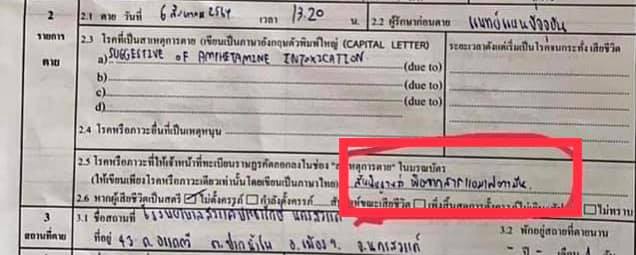 2
รายการ
ตาย
2.1 ตาย วันที่ 6 สิงหาคม 2564 เวลา 13.20 น.
2.2 ผู้รักษาก่อนตาย แพทย์แผนปัจจุบัน
2.3 โรคที่เป็นสาเหตุการตาย (เขียนเป็นภาษาอังกฤษตัวพิมพ์ใหญ่ (CAPITAL LETTER)
ระยะเวลาตั้งแต่เริ่มเป็นโรคจนกระทั่งเสียชีวิต
a) SUGGESTIVE OF AMPHETAMINE INTOXICATION (due to)
b) (due to)
c) (due to)
d)
2.4 โรคหรือภาวะอื่นที่เป็นเหตุหนุน
2.5 โรคหรือภาวะที่ให้เจ้าหน้าที่ทะเบียนราษฎรคัดลอกลงในช่อง "สาเหตุการตาย" ในมรณบัตร
(ให้เขียนเพียงโรคหรือภาวะเดียวเท่านั้นโดยเขียนเป็นภาษาไทย) สันนิษฐานว่า พิษจากสารแอมเฟตามีน
2.6 หากผู้เสียชีวิตเป็นสตรี ไม่ตั้งครรภ์ กำลังตั้งครรภ์ ขณะเสียชีวิต ไม่ทราบ
3
สถานที่ตาย
3.1 ชื่อสถานที่ โรงพยาบาลสวรรค์ประชารักษ์ นครสวรรค์
3.2 พักอยู่สถานที่ตายนาน
ที่อยู่ 43 ถ. อรรถกวี ต. ปากน้ำโพ อ. เมือง จ. นครสวรรค์
- ปี - เดือน